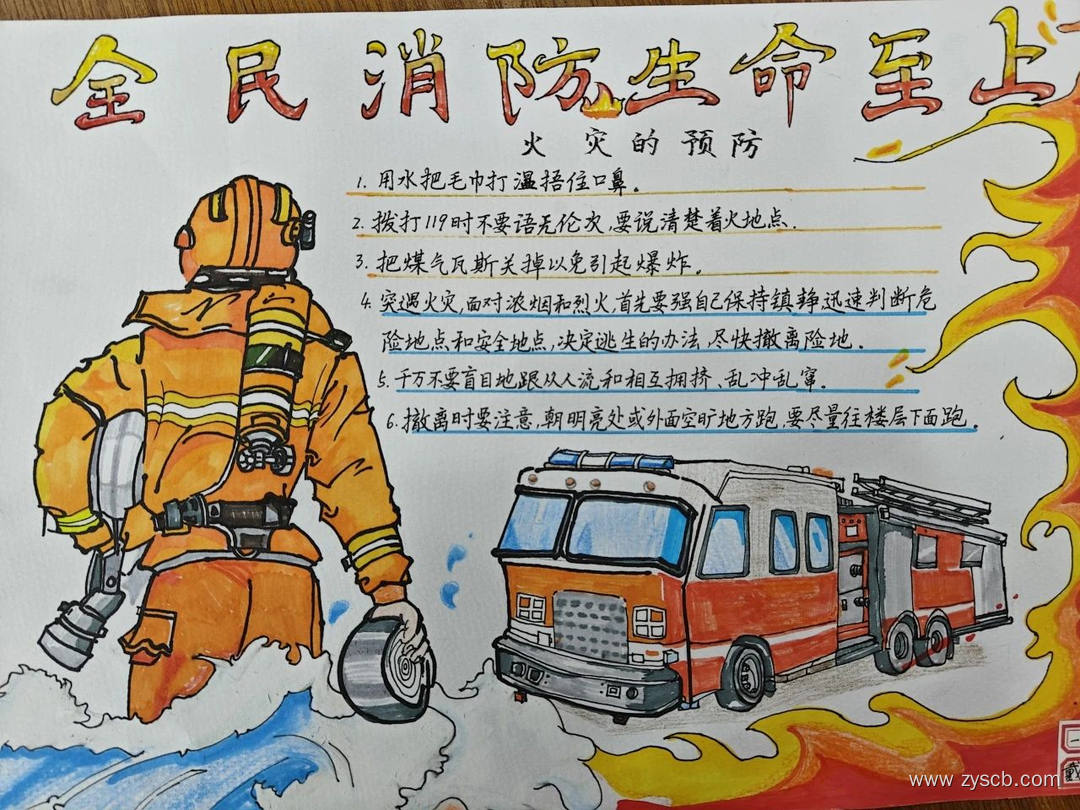 全民消防生命至上
火灾的预防
1. 用水把毛巾打温捂住口鼻。
2. 拨打119时不要语无伦次,要说清楚着火地点.
3. 把煤气瓦斯关掉以免引起爆炸。
4. 突遇火灾,面对浓烟和烈火,首先要强自己保持镇静迅速判断危
险地点和安全地点,决定逃生的办法,尽快撤离险地.
5. 千万不要盲目地跟从人流和相互拥挤、乱冲乱窜.
6. 撤离时要注意,朝明亮处或外面空旷地方跑,要尽量往楼层下面跑.
www.zyscb.com